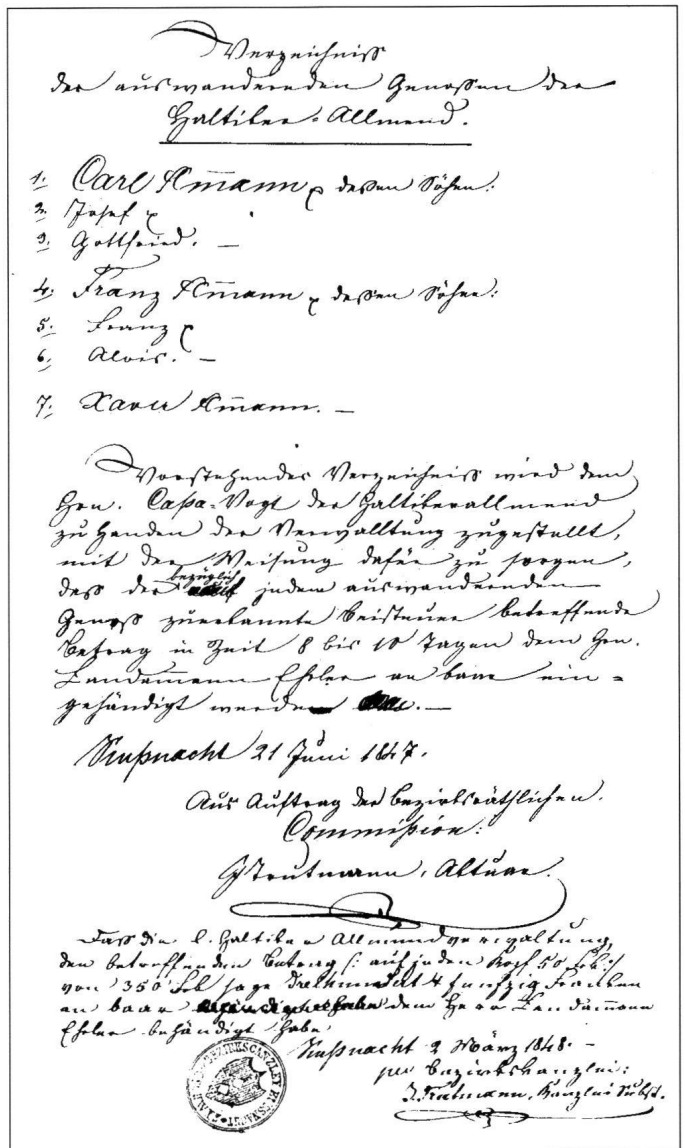 Verzeichniss
der auswandernden Genossen der
Haltiker-Allmend.
1. Carl Am̄ann, dessen Söhne:
2. Josef
3. Gottfried. —
4. Franz Am̄ann, dessen Söhne:
5. Franz
6. Alois. —
7. Xaver Am̄ann. —
Vorstehendes Verzeichniss wird dem
Hrn. Cassa-Vogt der Haltikerallmend
zu Handen der Verwalltung zugestellt,
mit der Weisung dafür zu sorgen,
daß der bezüglich jedem auswandernden
Genoss zuerkannte Beisteuer betreffende
Betrag in Zeit 8 bis 10 Tagen dem Hrn.
Landam̄ann Ehrler an baar ein-
gehändigt werde. —
Küßnacht 21 Juni 1847.
Aus Auftrag der bezirksräthlichen.
Commißion:
Trutmann, Aktuar.
Daß die l. Haltiker Allmendverwaltung,
den betreffenden Betrag /: auf jeden Kopf 50 Frk :/
von 350 Frk sage Dreihundert & fünfzig Franken
an baar dem Herr Landam̄ann
Ehrler behändigt habe
Küßnacht 2 März 1848. —
per Bezirkskanzlei:
Trutmann, Kanzlei Subst.